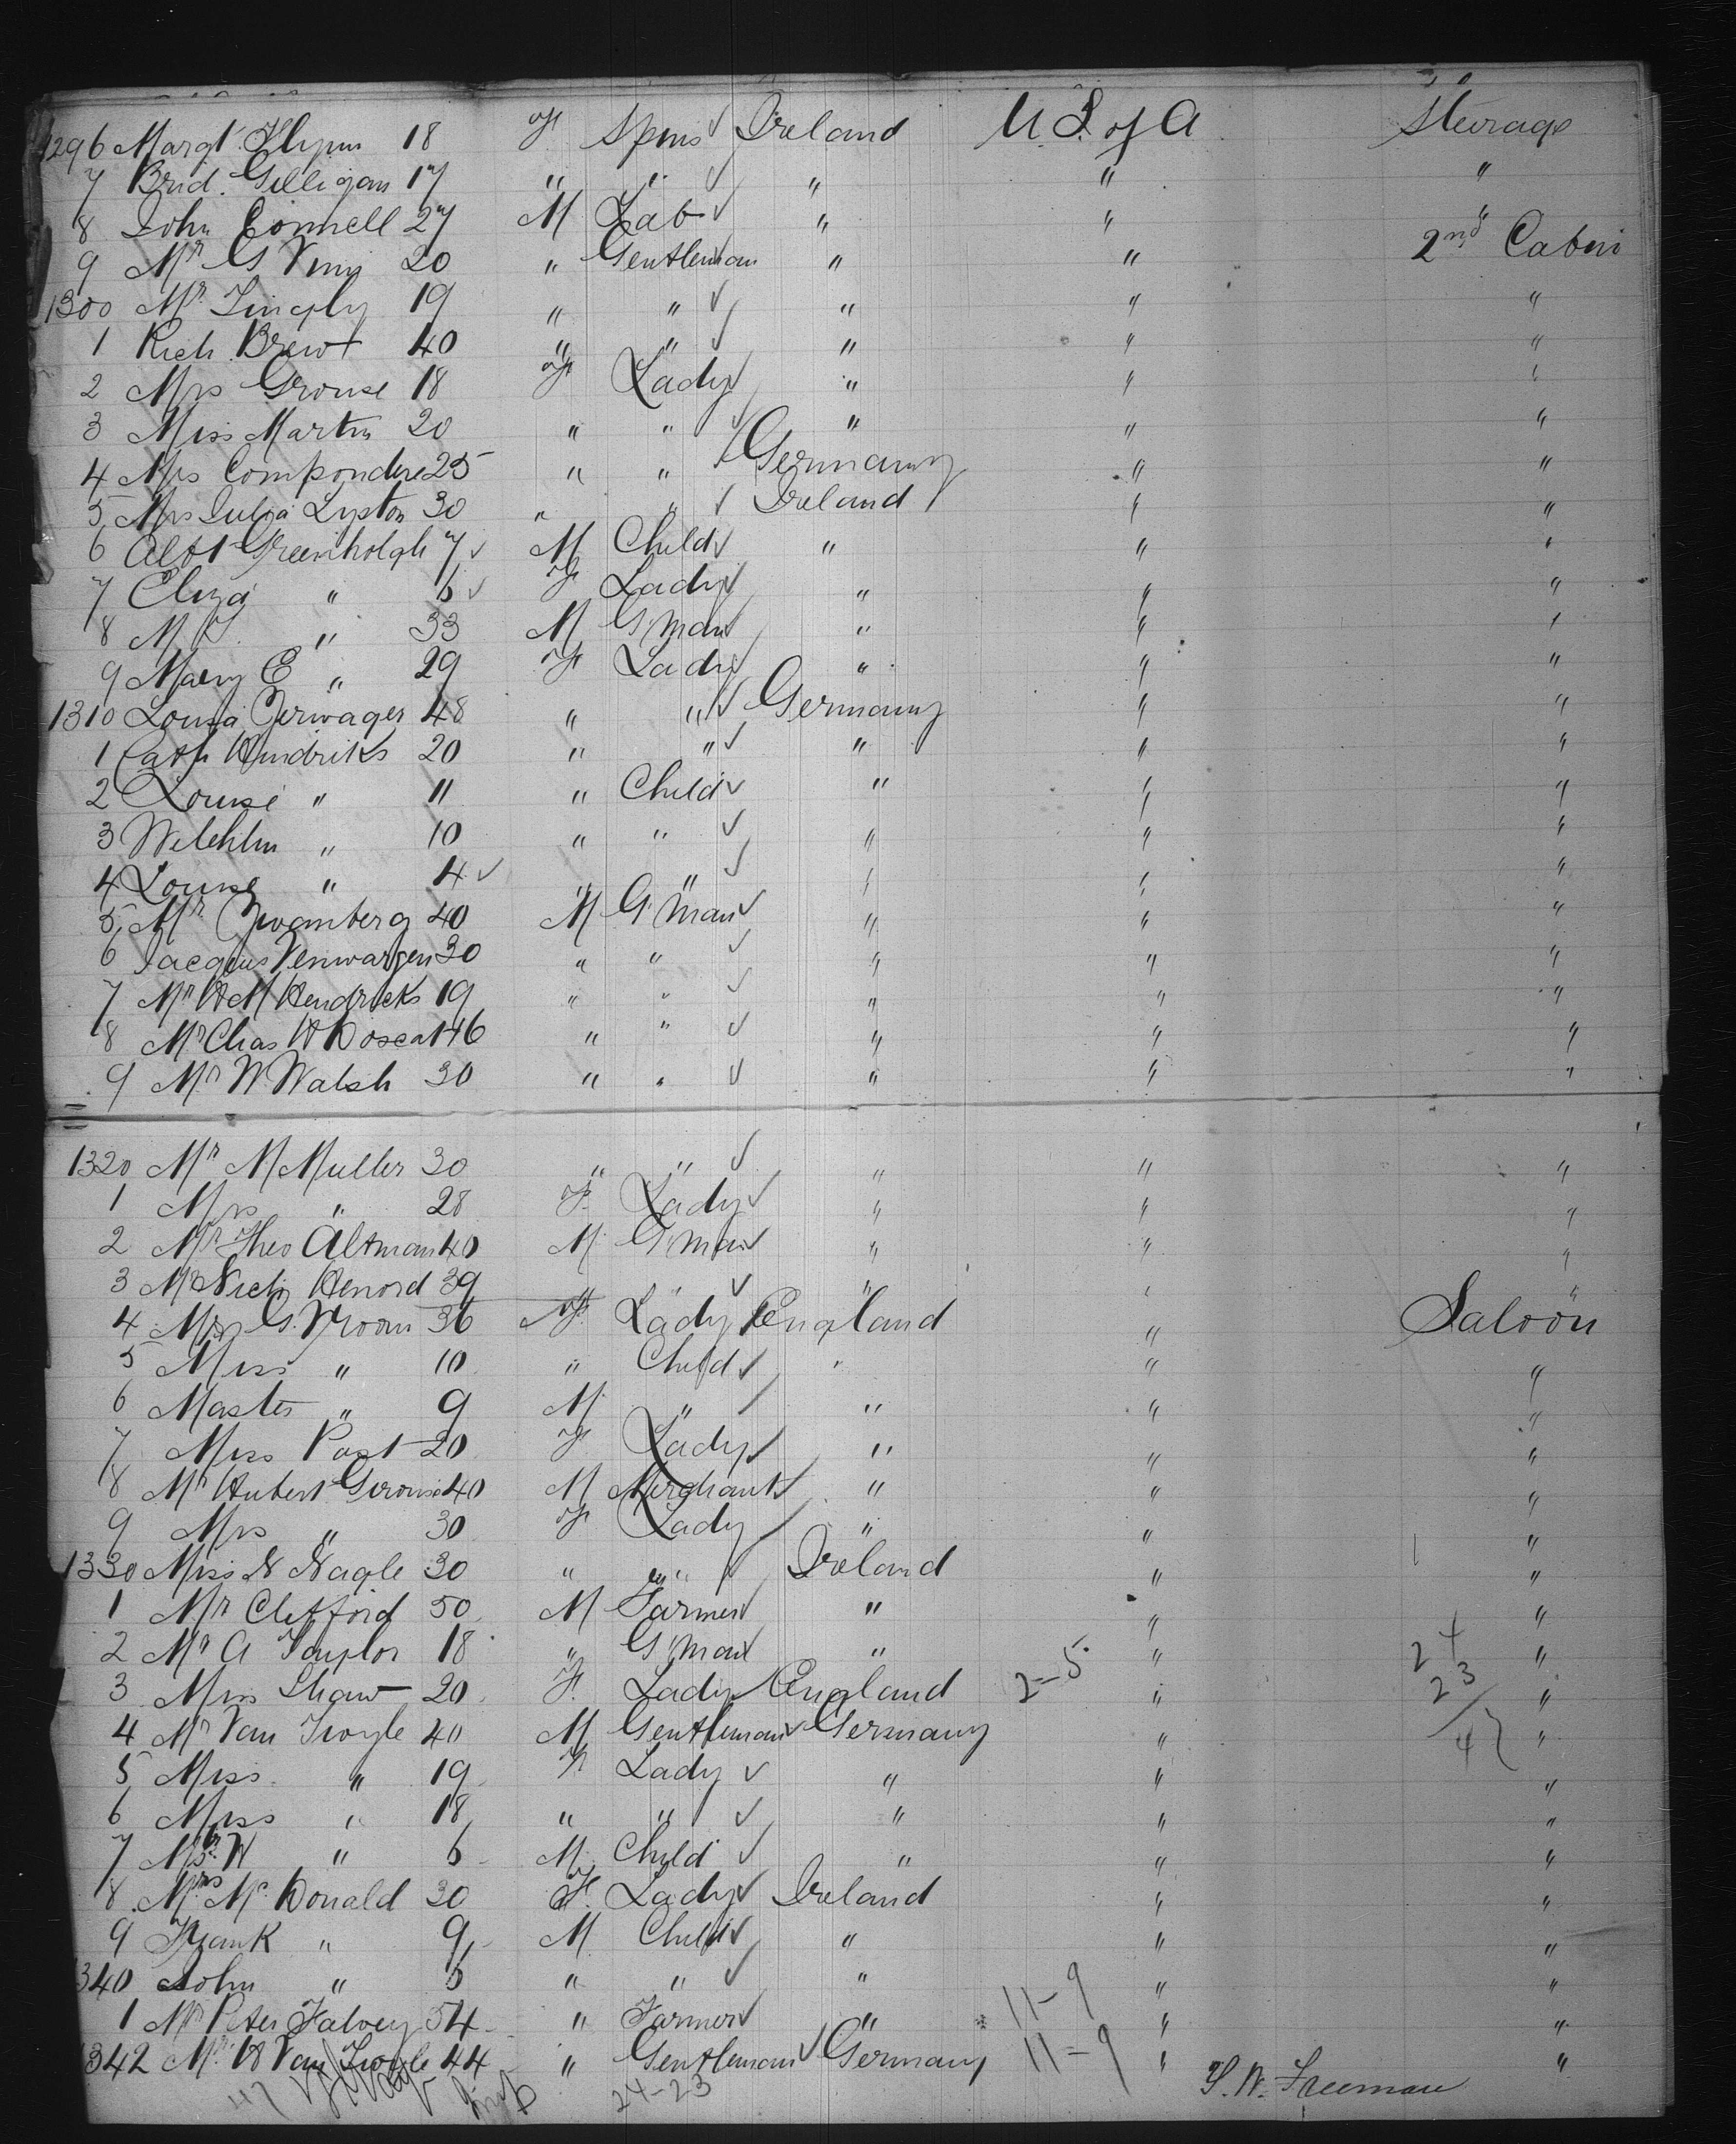 1296 Margt Flynn 18 F Spins Ireland U S of A Steerage
7 Brid. Gilligan 17 " " " " "
8 John Connell 27 M Lab " " "
9 Mr G 20 " Gentleman " " 2nd Cabin
1300 Mr 19 " " " " "
1 Rich. Brew 40 " " " " "
2 Mrs Grouse 18 F Lady " " "
3 Miss Martin 20 " " " " "
4 Mrs 25 " " Germany " "
5 Mrs Julia Lyston 30 " " Ireland " "
6 Albt Greenholgh 7 M Child " " "
7 Eliza " 6 F Lady " " "
8 M T. " 33 M G'man " " "
9 Mary E " 29 F Lady " " "
1310 Louisa 48 " " Germany " "
1 Cath Hendriks 20 " " " " "
2 Louise " 11 " Child " " "
3 " 10 " " " " "
4 Louise " 4 " " " " "
5 Mr 40 M G'man " " "
6 Jacques 30 " " " " "
7 Mr H M Hendricks 19 " " " " "
8 Mr Chas 46 " " " " "
9 Mr W Walsh 30 " " " " "
1320 Mr M Muller 30 " " " " "
1 Mrs " 28 F Lady " " "
2 Mr Theo Altman 40 M G'man " " "
3 Mr Nich Henord 39 " " " "
4 Mrs G. Vroom 36 F Lady England " Saloon
5 Miss " 10 " Child " " "
6 Master " 9 M " " " "
7 Miss Post 20 F Lady " " "
8 Mr Hubert 40 M Merchant " " "
9 Mrs " 30 F Lady " " "
1330 Miss N Nagle 30 " " Ireland " "
1 Mr Clifford 50 M Farmer " " "
2 Mr A Taylor 18 " G'man " " 24 "
3 Miss Shaw 20 F. Lady England 2-5 " 23 "
4 Mr Van 40 M Gentleman Germany " 47 "
5 Miss " 19 F Lady " " "
6 Miss " 18 " " " " "
7 H " 6 M Child " " "
8 Mrs Mc Donald 30 F. Lady Ireland " "
9 Frank " 9 M Child " " "
1340 John " " " " " "
1 Mr Peter Falvey 54 " Farmer " 11-9 " "
1342 Mr H Van 44 " Gentleman Germany 11-9 " "
47 24-23 Freeman